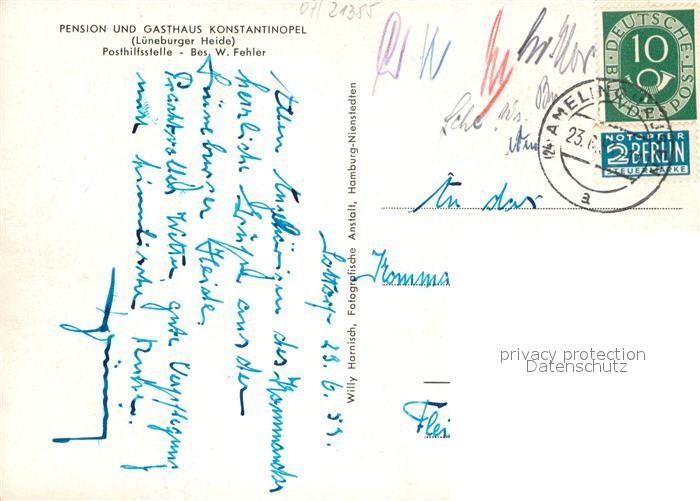 07/21355
PENSION UND GASTHAUS KONSTANTINOPEL
(Lüneburger Heide)
Posthilfsstelle - Bes. W. Fehler
Willy Harnisch, Fotografische Anstalt, Hamburg-Nienstedten
23.6.53.
Allen Angehörigen des Kommandos
herzliche Grüße aus der
Lüneburger Heide.
Prachtvolles Wetter, gute Verpflegung
und himmlische Ruhe.
DEUTSCHE BUNDESPOST
10
NOTOPFER
2 BERLIN
STEUERMARKE
(24a) AMELING
23.6.
a
An das
Komma
privacy protection
Datenschutz
Flei